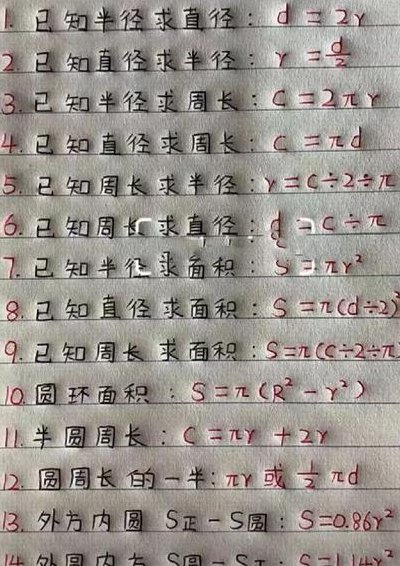 1. 已知半径求直径: d = 2r
2. 已知直径求半径: r = d/2
3. 已知半径求周长: C = 2πr
4. 已知直径求周长: C = πd
5. 已知周长求半径: r = C÷2÷π
6. 已知周长求直径: d = C÷π
7. 已知半径求面积: S = πr²
8. 已知直径求面积: S = π(d÷2)²
9. 已知周长求面积: S=π(C÷2÷π)
10. 圆环面积: S = π(R²-r²)
11. 半圆周长: C = πr + 2r
12. 圆周长的一半: πr 或 1/2 πd
13. 外方内圆 S正-S圆: S=0.86r²
14. 外圆内方 S圆-S正: S=1.14r²